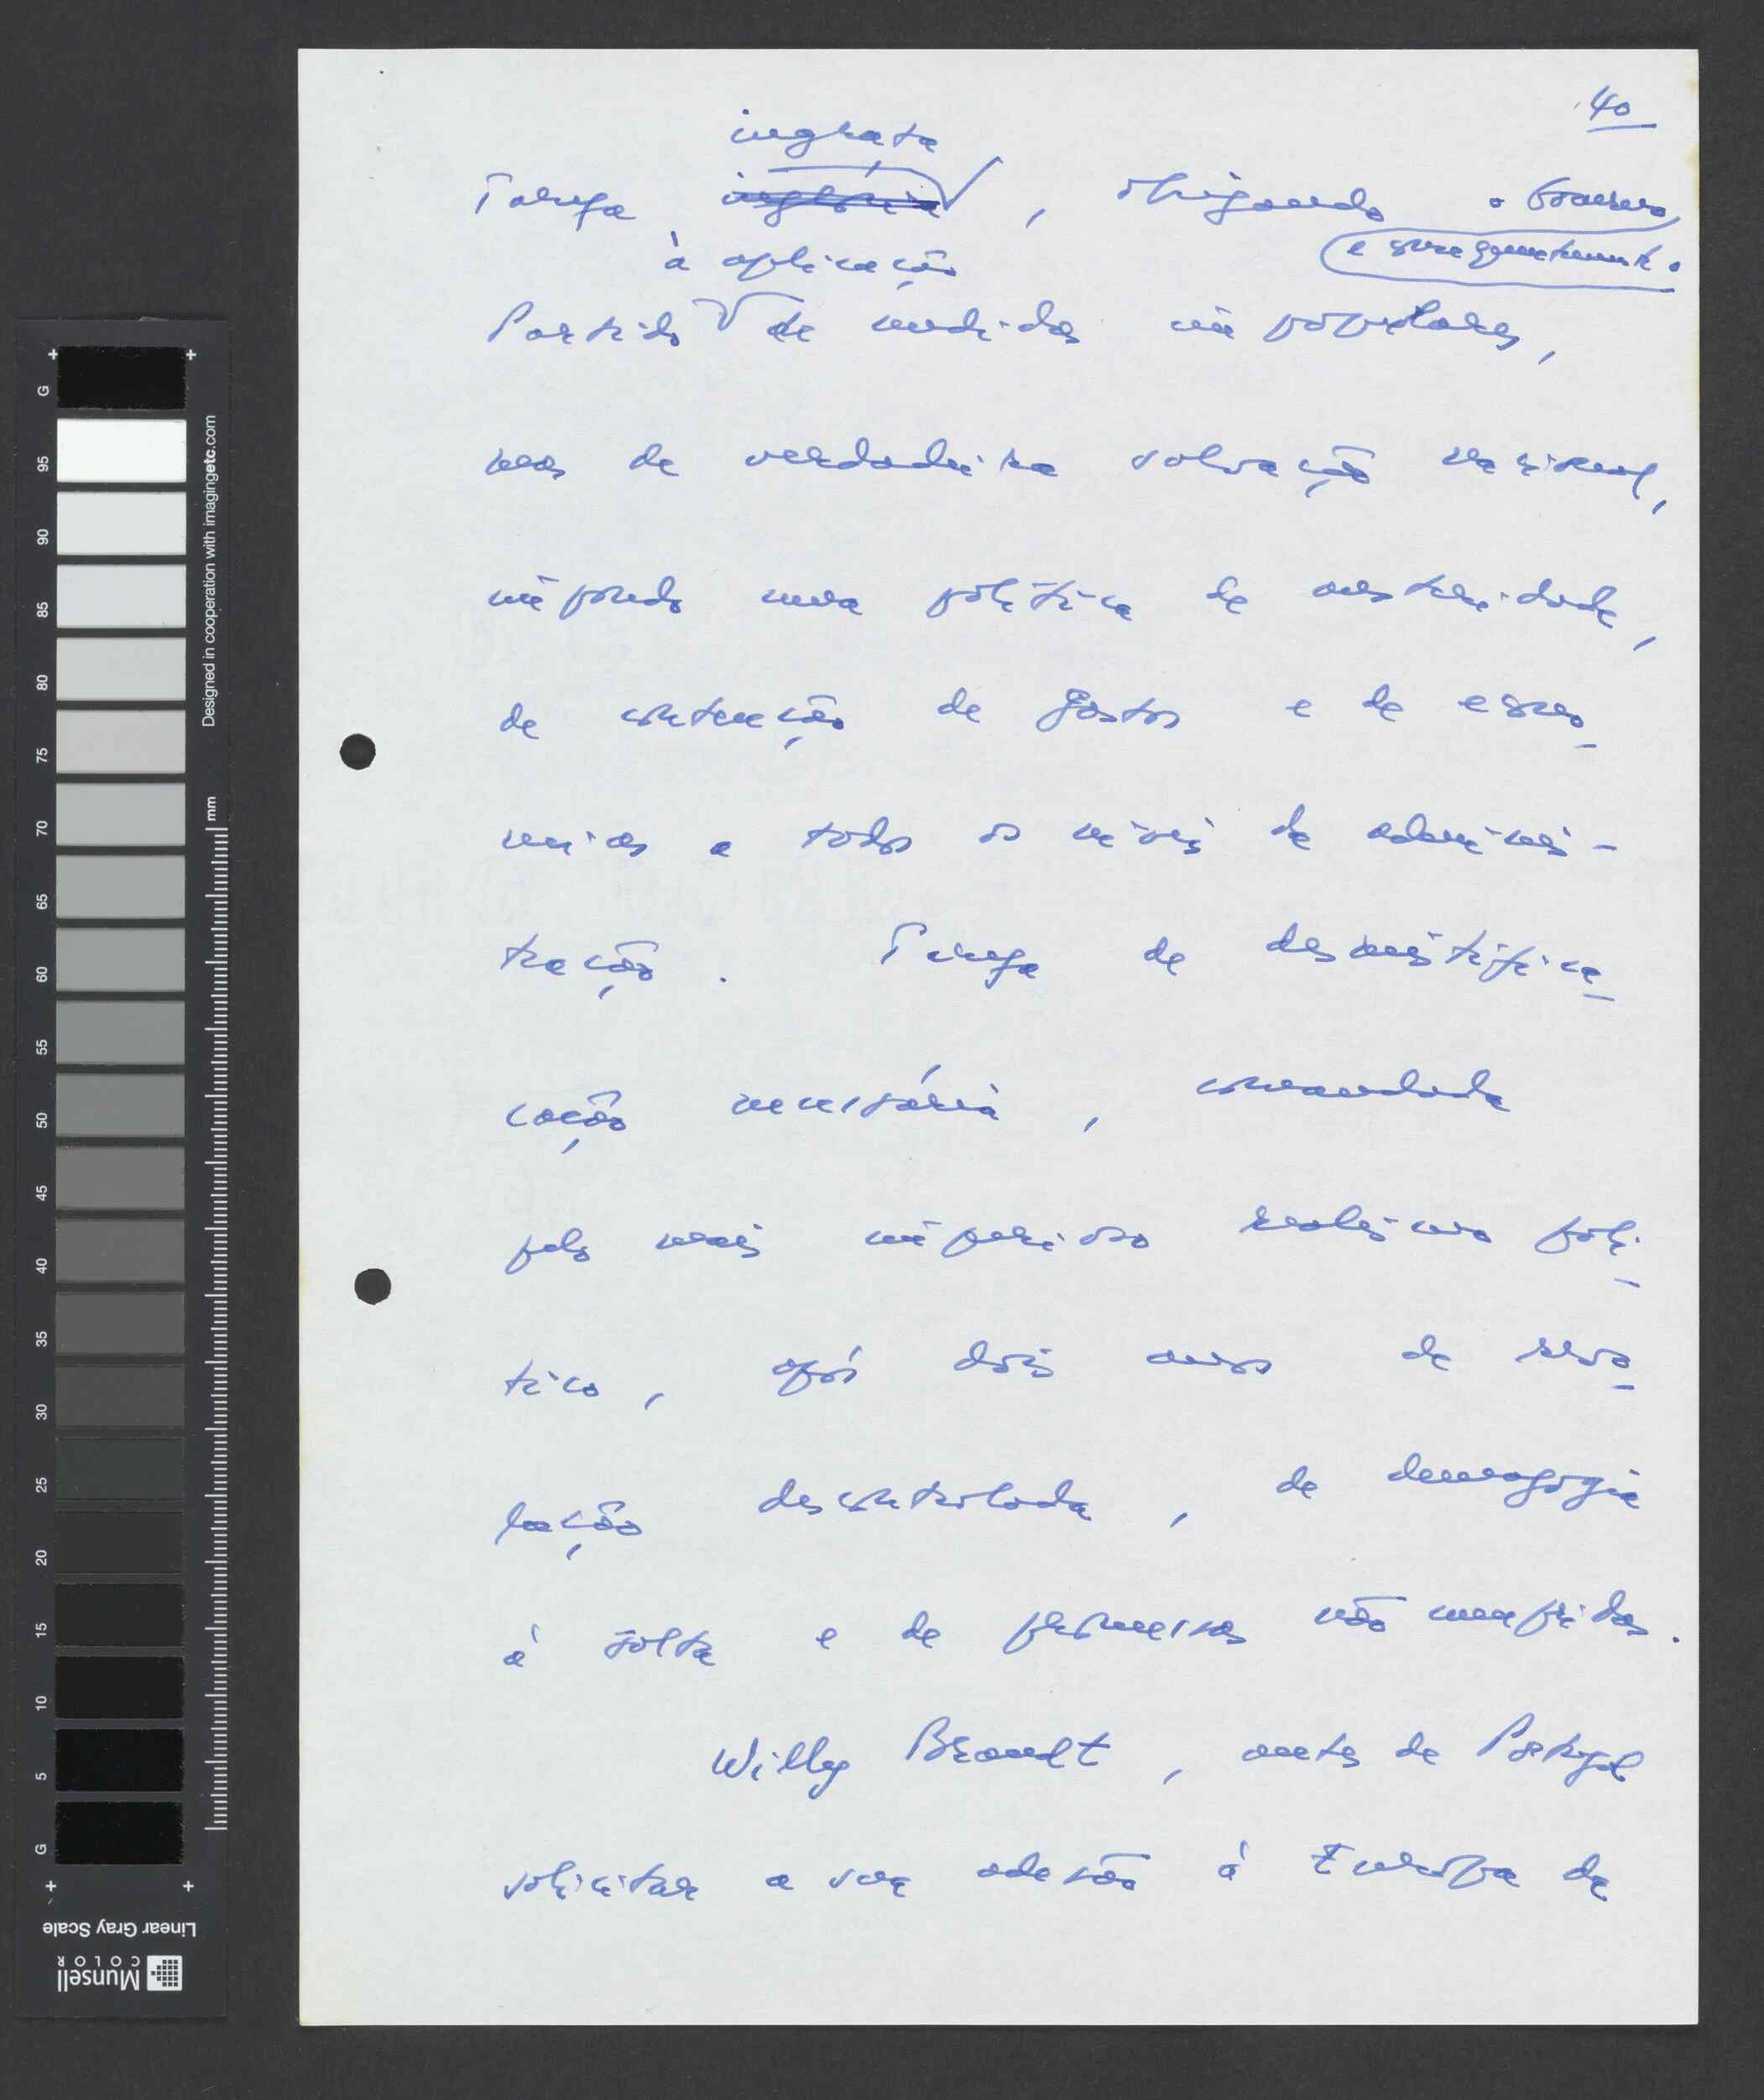 40
ingrata
Tarefa inglória, obrigando o Governo,
e consequentemente o
à aplicação
Partido de medidas impopulares,
mas de verdadeira salvação nacional,
impondo uma política de austeridade,
de contenção de gastos e de econo-
mias a todos os níveis da adminis-
tração. Tarefa de desmistifica-
cação necessária, comandada
pelo mais imperioso realismo polí-
tico, após dois anos de revo-
lução descontrolada, de demagogia
à solta e de promessas não cumpridas.
Willy Brandt, antes de Portugal
solicitar a sua adesão à Europa da
G 95 90 85 80 75 70 65 60 55 50 45 40 35 30 25 20 15 10 5 G
Designed in cooperation with imagingetc.com
mm
Linear Gray Scale
Munsell
COLOR